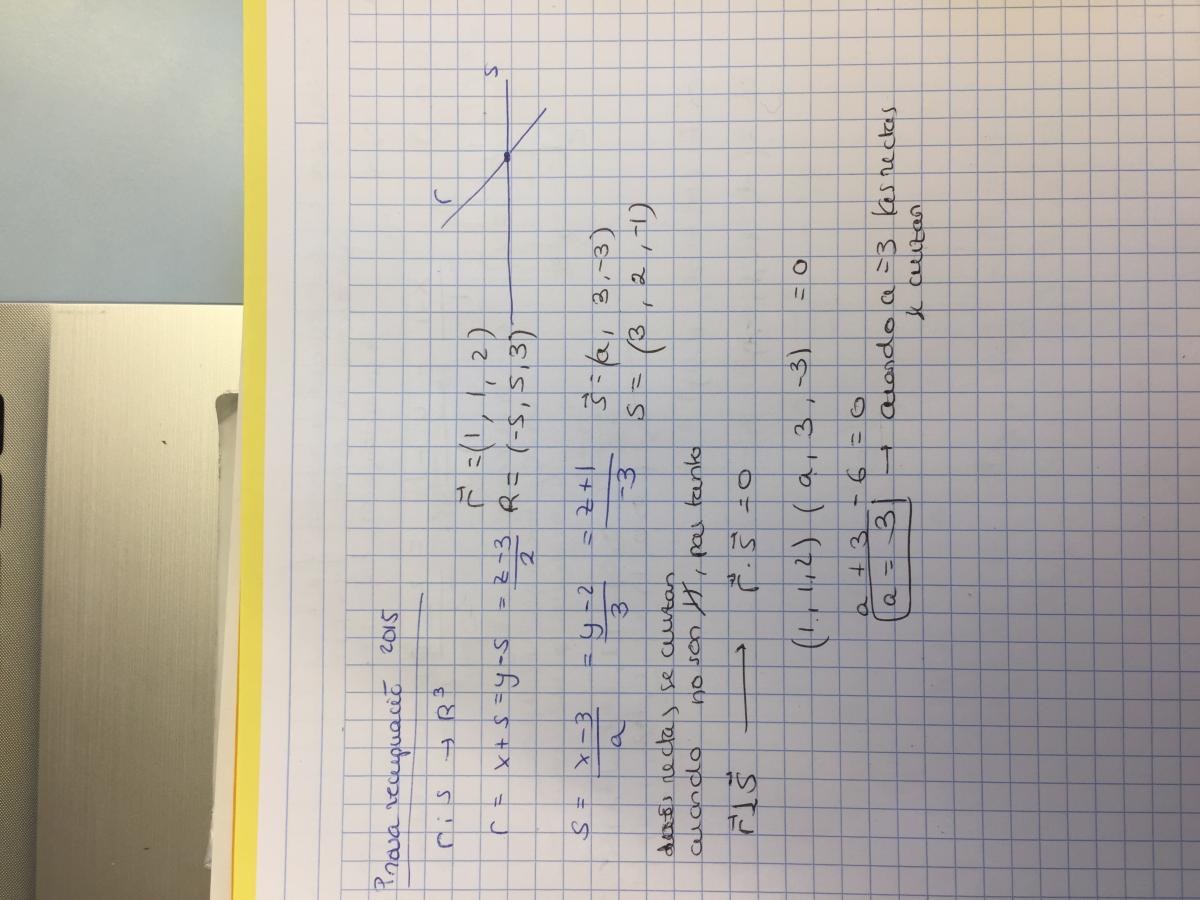 Prova recuperació 2015
r i s → R³
r = x+5 = y-5 = z-3/2
r⃗ = (1, 1, 2)
R = (-5, 5, 3)
r
s
s = x-3/a = y-2/3 = z+1/-3
s⃗ = (a, 3, -3)
S = (3, 2, -1)
rectas se cortan
cuando no son //, por tanto
r⃗ ⊥ s⃗ ⟶ r⃗ · s⃗ = 0
(1, 1, 2) (a, 3, -3) = 0
a + 3 - 6 = 0
a = 3 → cuando a = 3 las rectas
se cortan